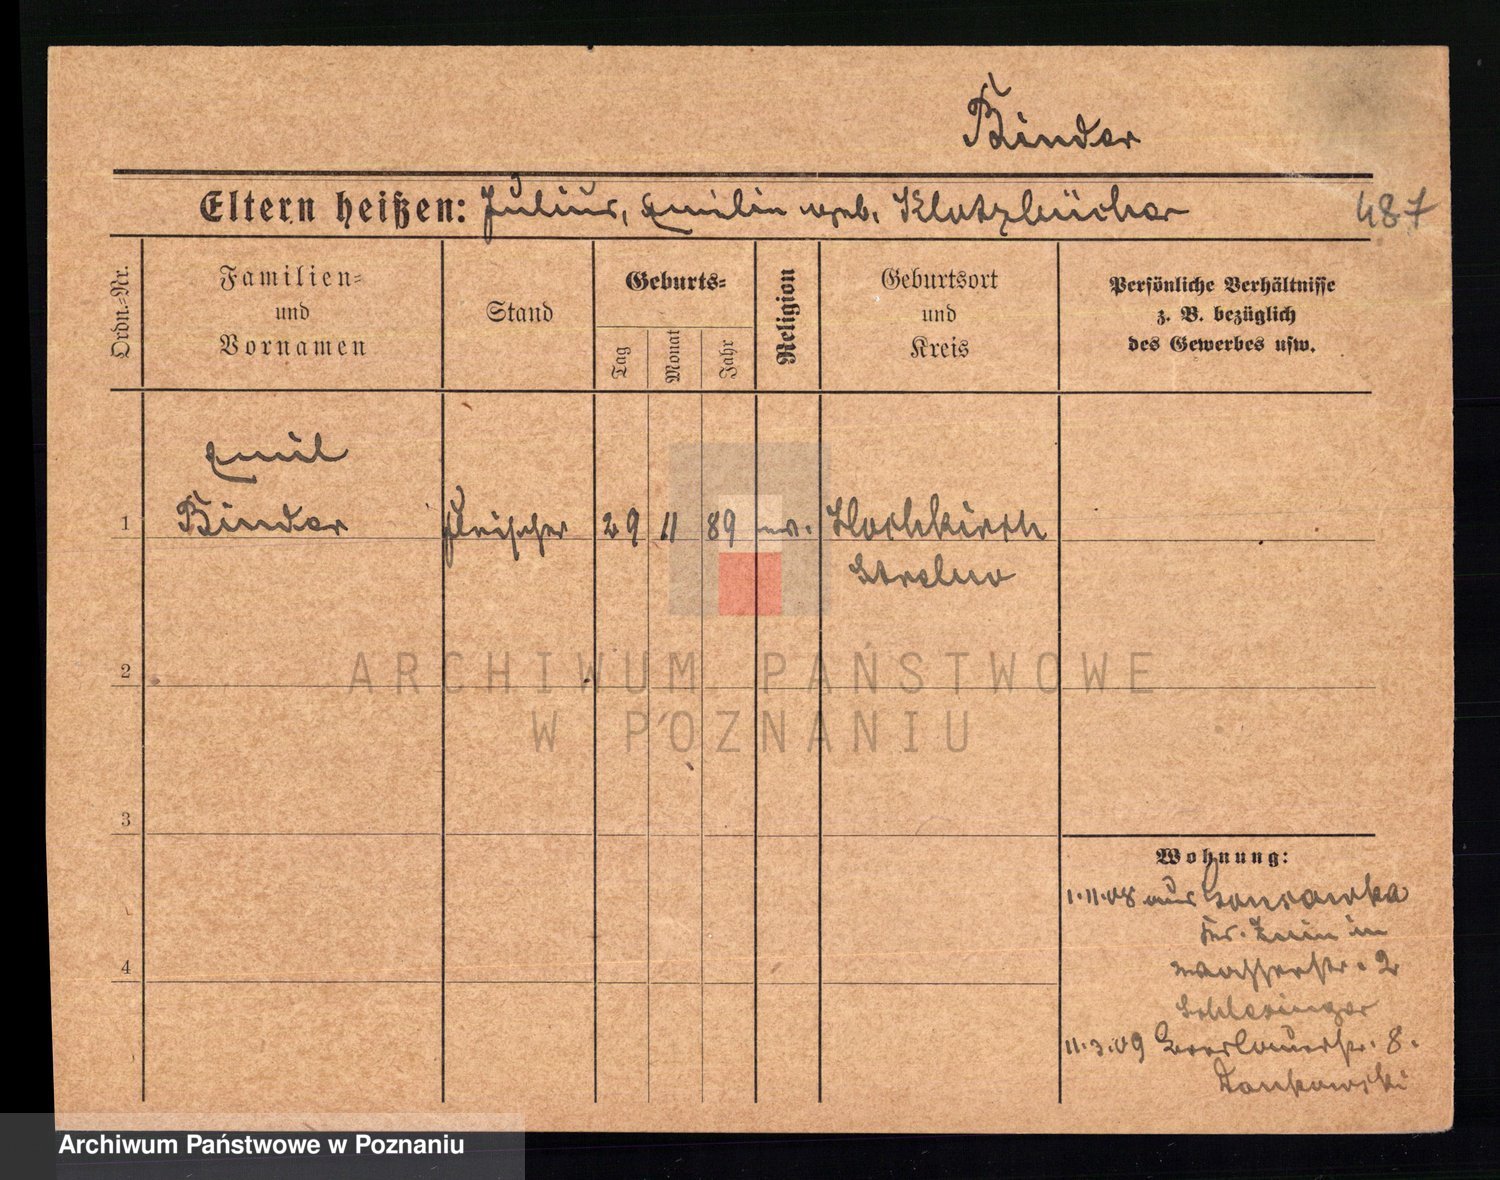 Binder
Eltern heißen: Julius, Emilie geb. Klotzbücher
487
Ordn.=Nr.
Familien=
und
Vornamen
Stand
Geburts=
Tag
Monat
Jahr
Religion
Geburtsort
und
Kreis
Persönliche Verhältnisse
z. B. bezüglich
des Gewerbes usw.
Emil
1 Binder Fleischer 29 11 89 ev. Hochkirch
Strelno
2
3
4
Wohnung:
1.11.08 aus
Kr. Znin in
Wasserstr. 2
Schlesinger
11.3.09 8.
Jankowski
ARCHIWUM PAŃSTWOWE
W POZNANIU
Archiwum Państwowe w Poznaniu